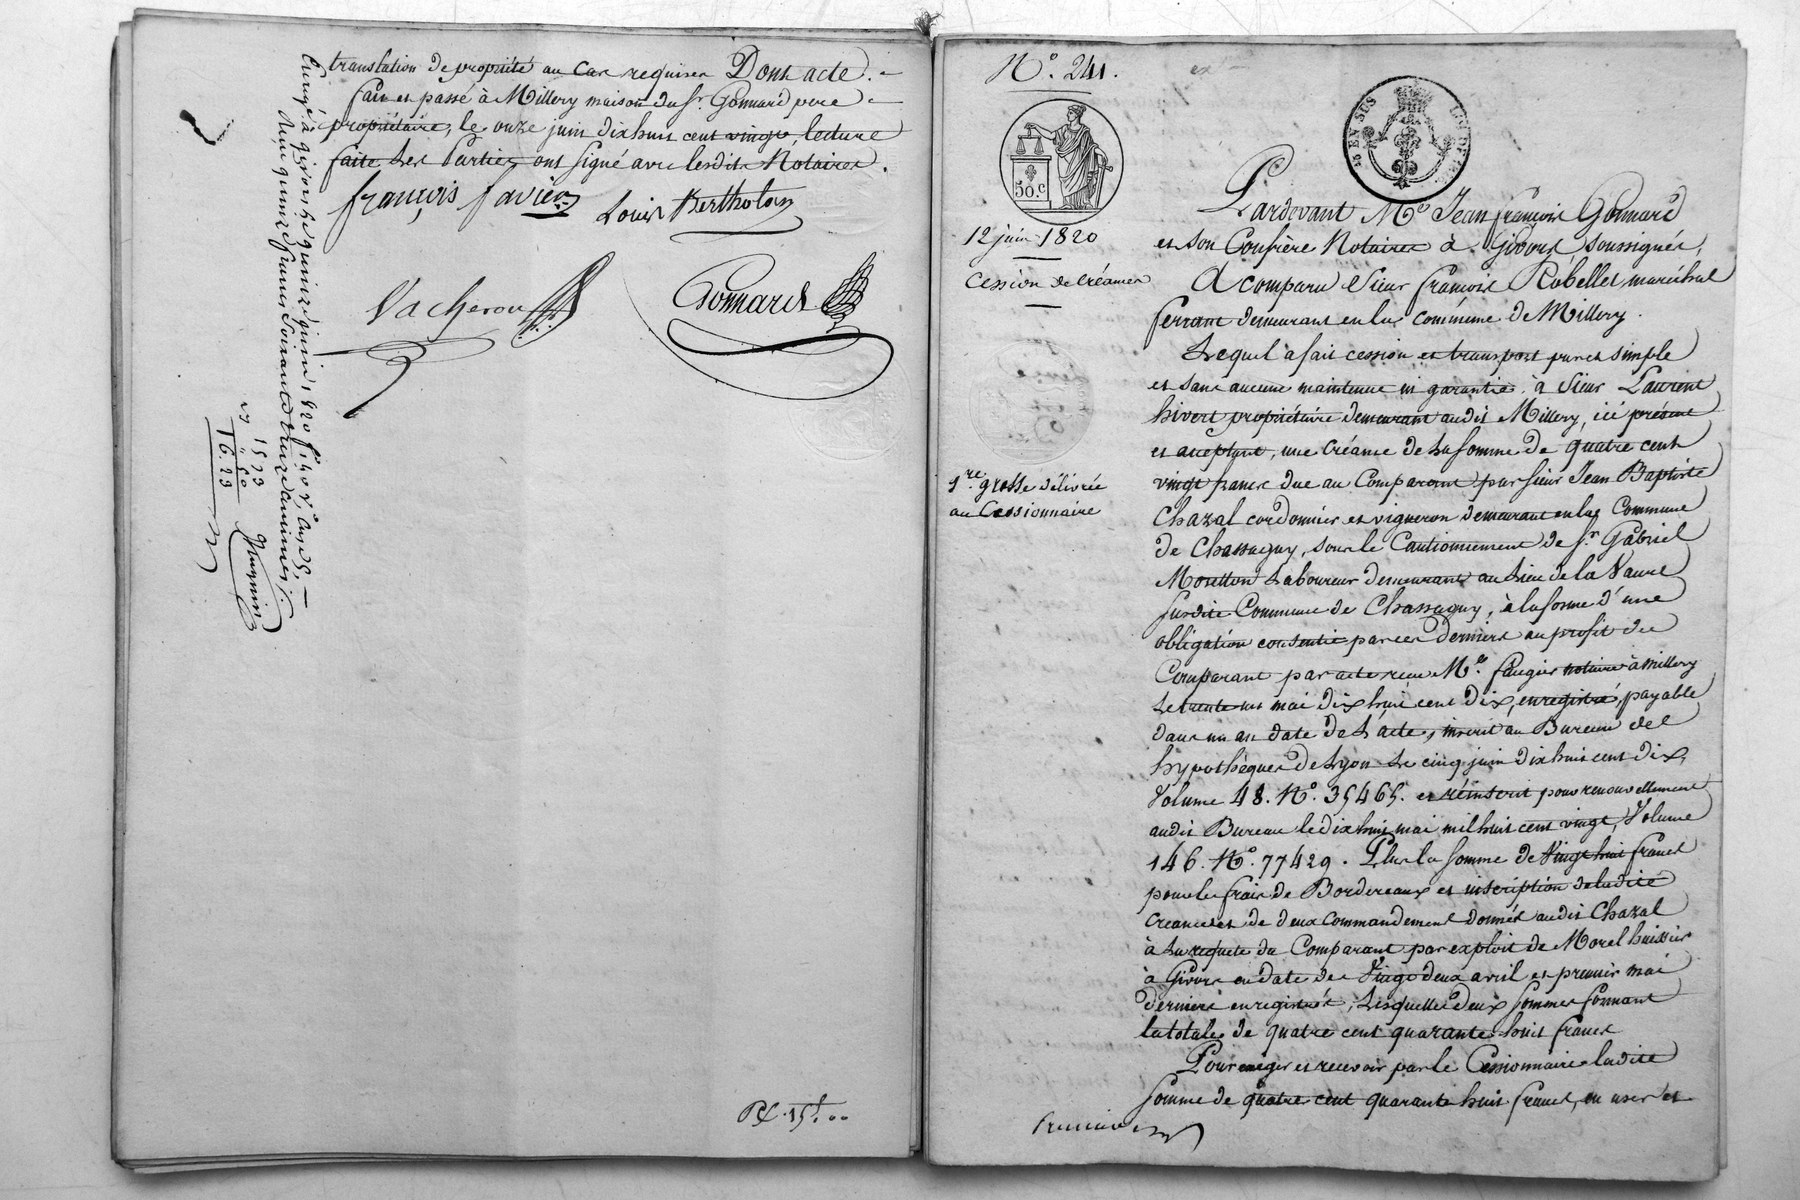 translation de propriété au cas requises Dont acte.
fait et passé à Millery maison du Sr. Gonnard père
propriétaire, le onze juin dix huit cent vingt, lecture
faite les Parties ont signé avec lesdits Notaires.
françois favier
Louis Bertholon
Vacheron
Gonnard
Enregé. à givors le quinze juin 1820 fo. 140 Vo.
Reçu quinze francs soixante treize centimes
1573
1623
15f. 00
No. 241.
50 c
EN SUS
12 juin 1820
Cession de Créances
1re. grosse délivrée
au Cessionnaire
Pardevant Me. Jean françois Gonnard
et son Confrère Notaires à Givors soussignés,
A comparu Sieur françois Robellet maréchal
ferrant demeurant en la commune de Millery.
Lequel a fait cession et transport pur et simple
et sans aucune maintenue ni garantie, à Sieur Laurent
hivert propriétaire demeurant audit Millery, ici présent
et acceptant, une Créance de la somme de quatre cent
vingt francs due au Comparant par sieur Jean Baptiste
Chazal cordonnier et vigneron demeurant en la Commune
de Chassagny, sous le Cautionnement de Sr. Gabriel
laboureur demeurant au Lieu de la Vaure
susdite Commune de Chassagny, à la forme d'une
obligation consentie par ces derniers au profit du
Comparant par acte reçu Me. faugier notaire à millery
le trente un mai dix huit cent dix, enregistré, payable
dans un an date de l'acte, inscrit au Bureau des
hypothèques de Lyon le cinq juin dix huit cent dix,
Volume 48. No. 35465. et réinscrit pour renouvellement
audit Bureau le dix huit mai mil huit cent vingt, Volume
146. No. 77429. Plus la somme de vingt huit francs
pour les frais de Bordereaux et inscription de ladite
créance et de deux commandement donnés audit Chazal
à la requete du Comparant par exploit de Morel huissier
à Givors en date des Vingt deux avril et premier mai
derniers enregistrés, lesquelles deux sommes formant
la totale de quatre cent quarante huit francs
Pour exiger et recevoir par le Cessionnaire ladite
somme de quatre cent quarante huit francs, en user et